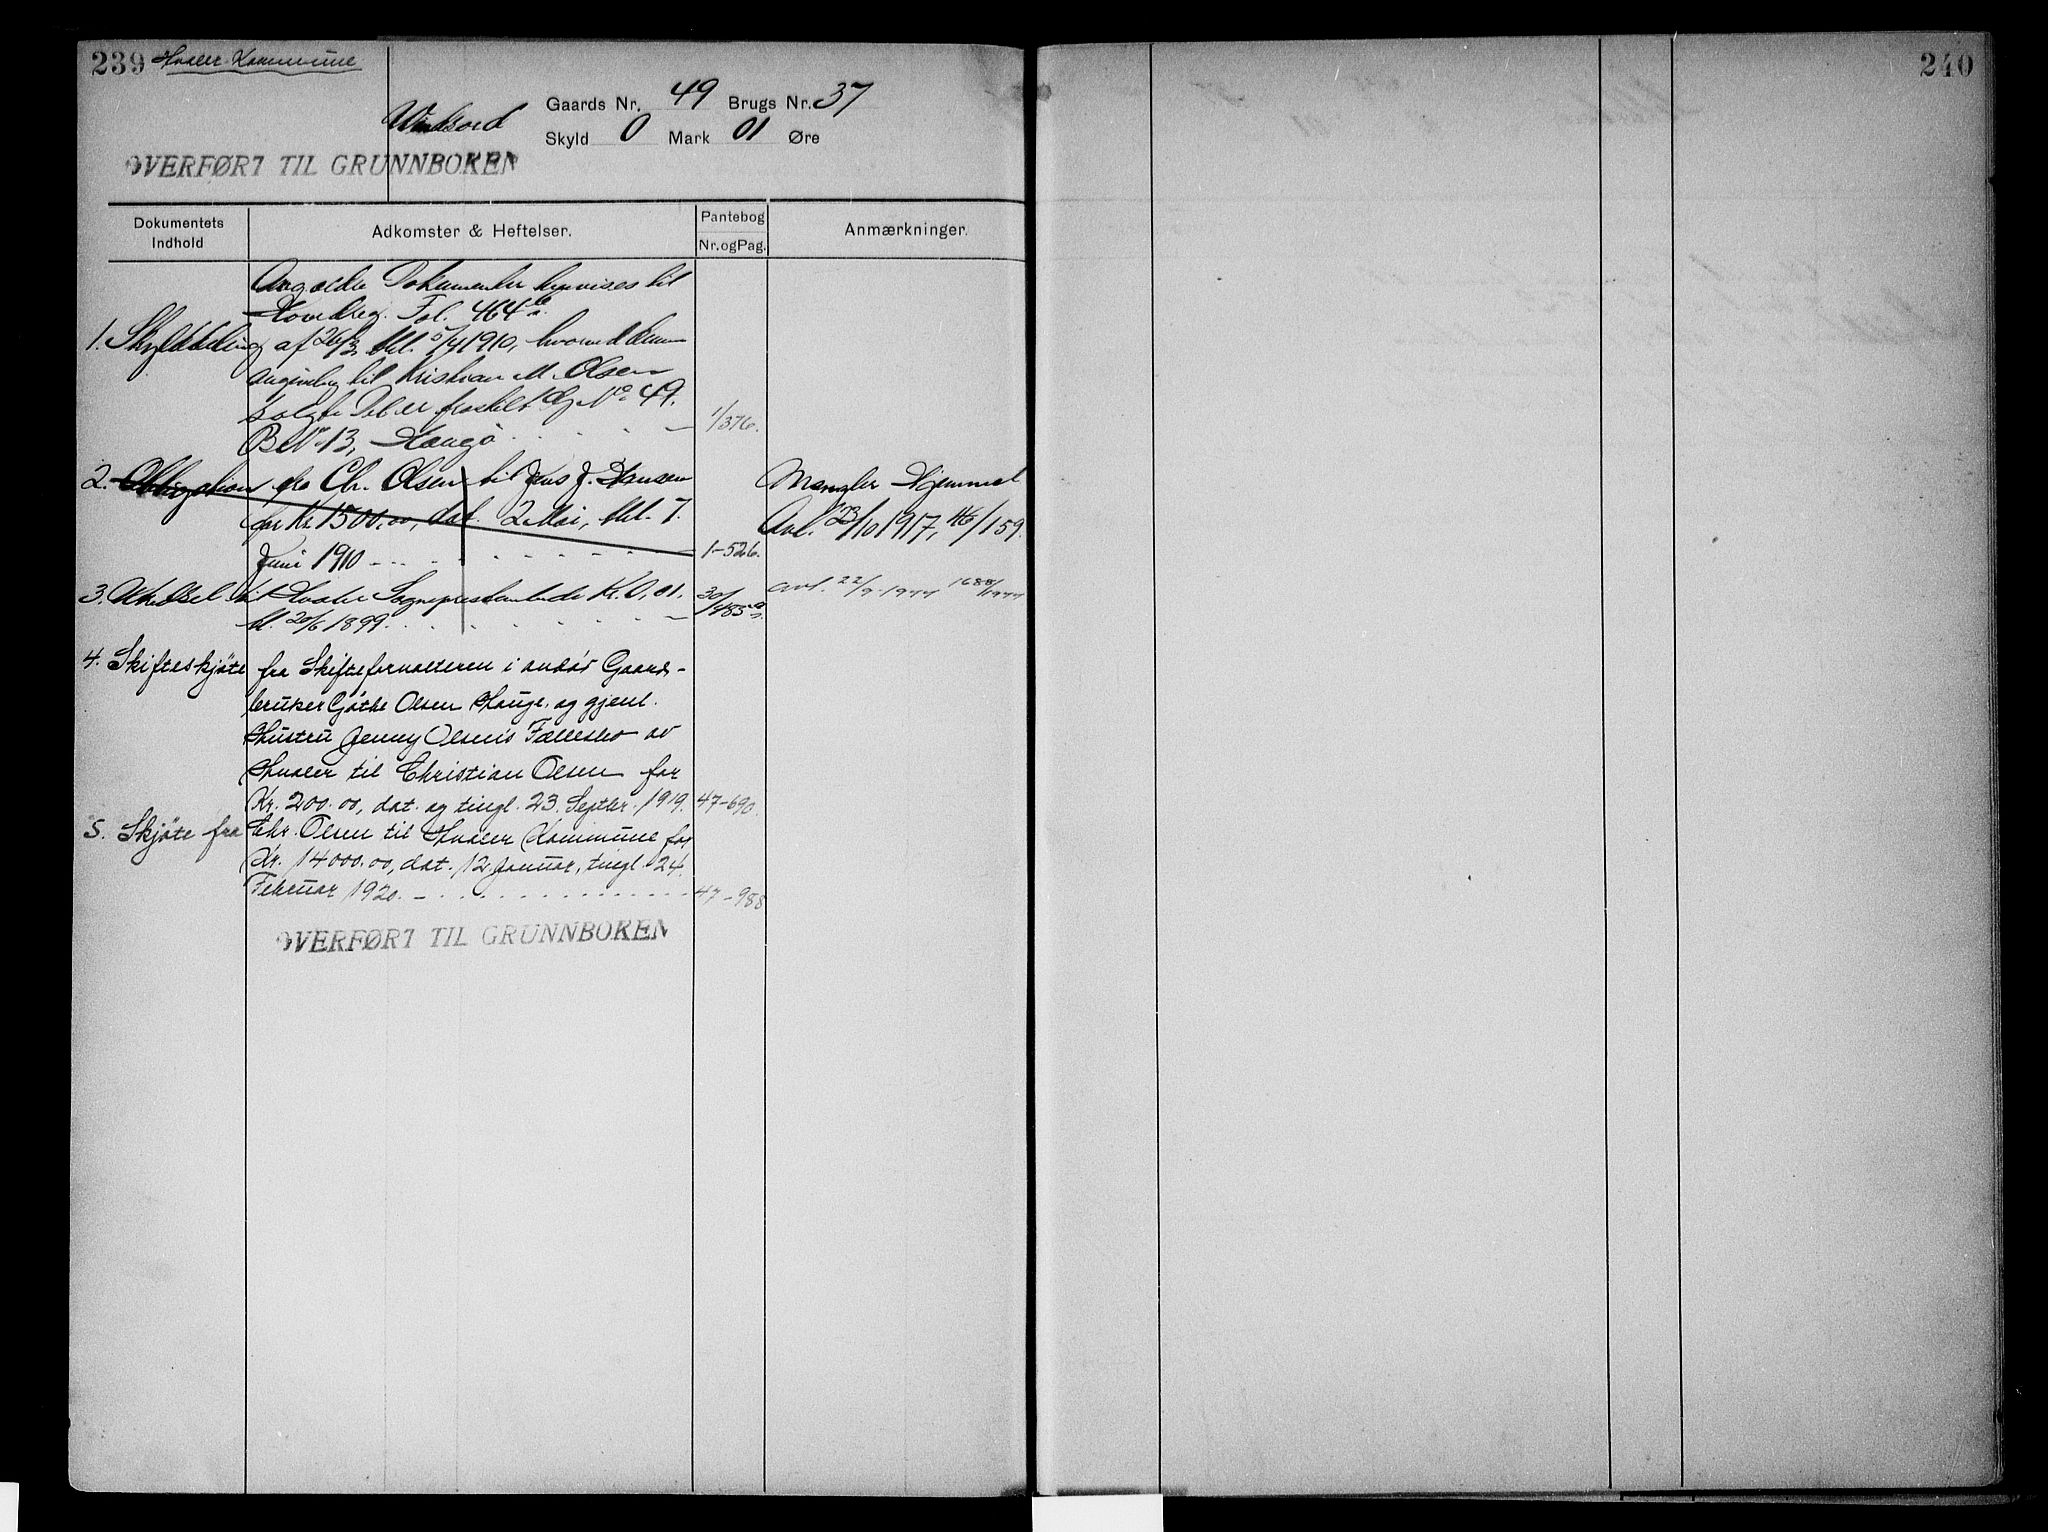 239 Hvaler Kommune
240
Gaards Nr. 49 Brugs Nr. 37
Skyld 0 Mark 01 Øre
OVERFØRT TIL GRUNNBOKEN
Dokumentets Indhold
Adkomster & Heftelser.
Pantebog
Nr. og Pag.
Anmærkninger.
Ang. ældre Dokumenter henvises til
Hovedreg. Fol. 464 a.
1. Skylddeling af 26/3, thl. 5/4 1910, hvorved denne
angivelig til Kristian M. Olsen
solgte Del er fraskilt G No 49.
B No 13, Haugø 1/376.
2. Obligation fra Chr. Olsen til Jens J. Hansen Mangler Hjemmel
for Kr. 1500.00, dat. 2 Mai, thl. 7. Avl. 23/10 1917, 46/159.
Juni 1910 1-526.
3. til Hvaler Sogneprestembede Kr. 0,01. 30/485 a. avl. 22/9-1944 1688/1944
tl. 20/6 1899.
4. Skifteskjøte fra Skifteforvalteren i avdøde Gaard-
bruker Gøthe Olsen Hauge og gjenl.
Hustru Jenny Olsens Fællesbo av
Hvaler til Christian Olsen for
Kr. 200.00, dat. og tingl. 23. Septbr. 1919. 47-690.
5. Skjøte fra Chr. Olsen til Hvaler Kommune for
Kr. 14000.00, dat. 12 Januar, tingl. 24.
Februar 1920. 47-988
OVERFØRT TIL GRUNNBOKEN